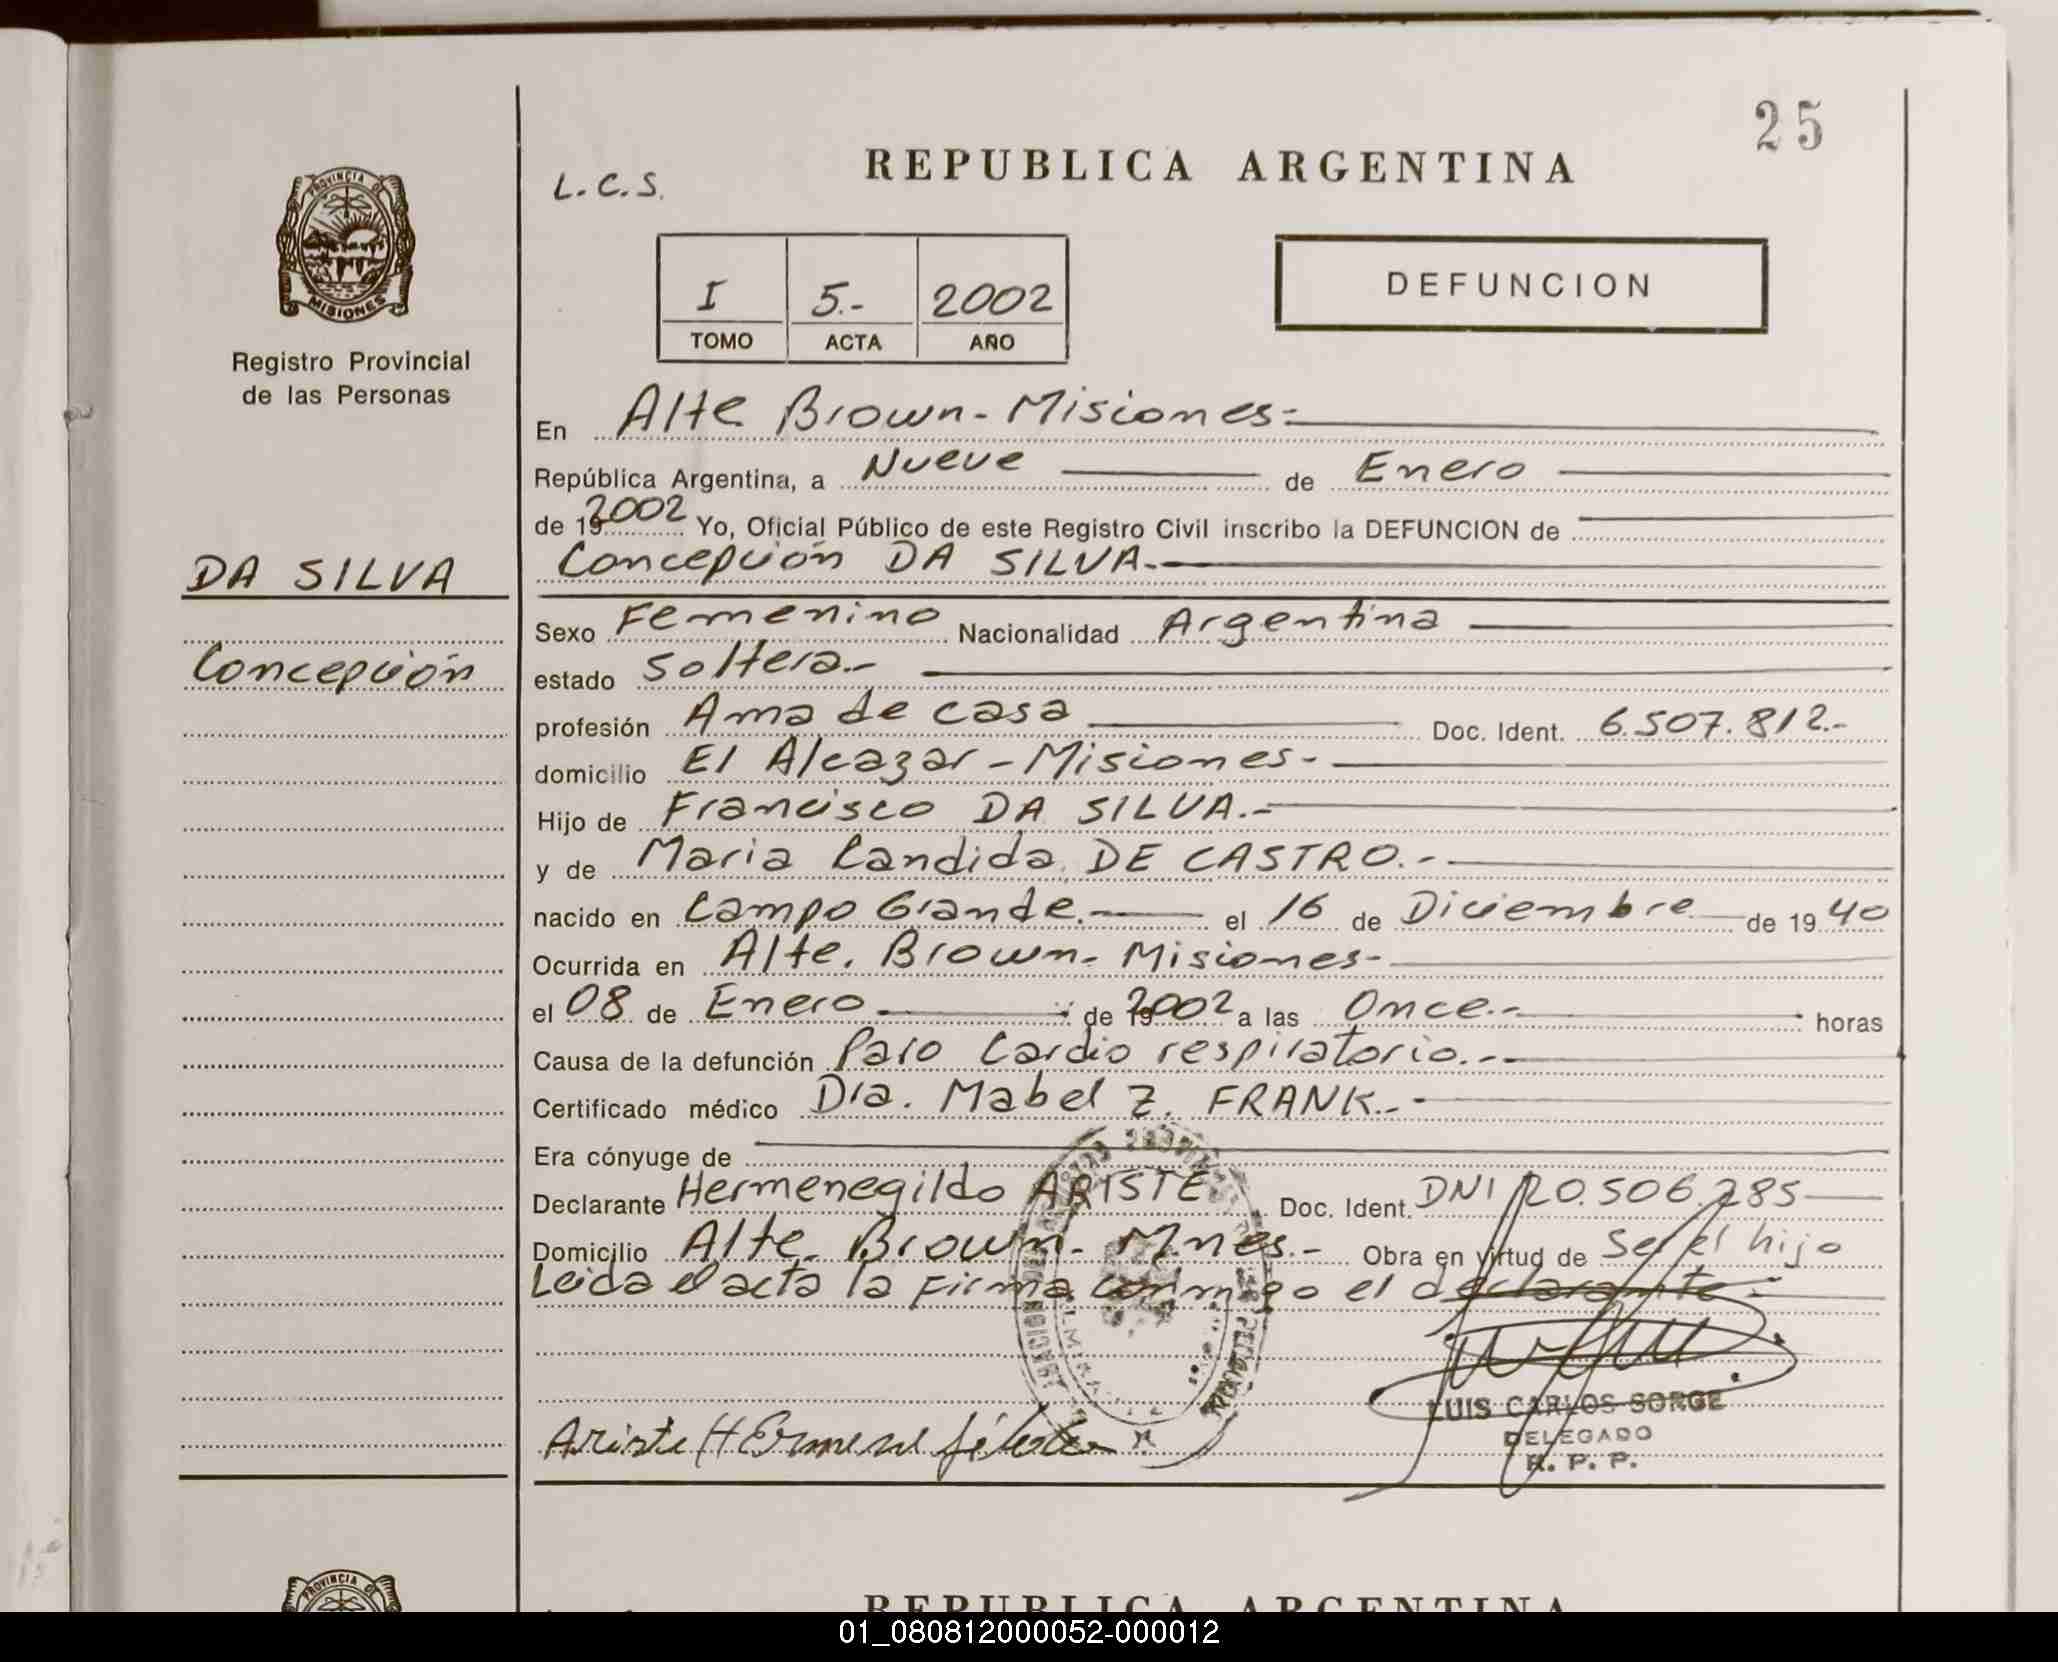 25
REPUBLICA ARGENTINA
L.C.S.
PROVINCIA DE
MISIONES
Registro Provincial
de las Personas
I 5.- 2002
TOMO ACTA AÑO
DEFUNCION
En Alte Brown - Misiones -
República Argentina, a Nueve de Enero
de 19 2002 Yo, Oficial Público de este Registro Civil inscribo la DEFUNCION de
DA SILVA
Concepción DA SILVA.-
Concepción
Sexo Femenino Nacionalidad Argentina
estado soltera.-
profesión Ama de casa Doc. Ident. 6.507.812.-
domicilio El Alcazar - Misiones -
Hijo de Francisco DA SILVA.-
y de Maria Candida DE CASTRO.-
nacido en Campo Grande.- el 16 de Diciembre de 19 40
Ocurrida en Alte. Brown - Misiones -
el 08 de Enero de 19 2002 a las Once.- horas
Causa de la defunción Paro Cardio respiratorio.-
Certificado médico Dra. Mabel Z. FRANK.-
Era cónyuge de
Declarante Hermenegildo ARISTE Doc. Ident. DNI 20.506.285
Domicilio Alte. Brown - Mnes.- Obra en virtud de ser el hijo
Leida el acta la firma conmigo el declarante -
LUIS CARLOS SORGE
DELEGADO
R. P. P.
Ariste
PROVINCIA DE
REPUBLICA ARGENTINA
01_080812000052-000012